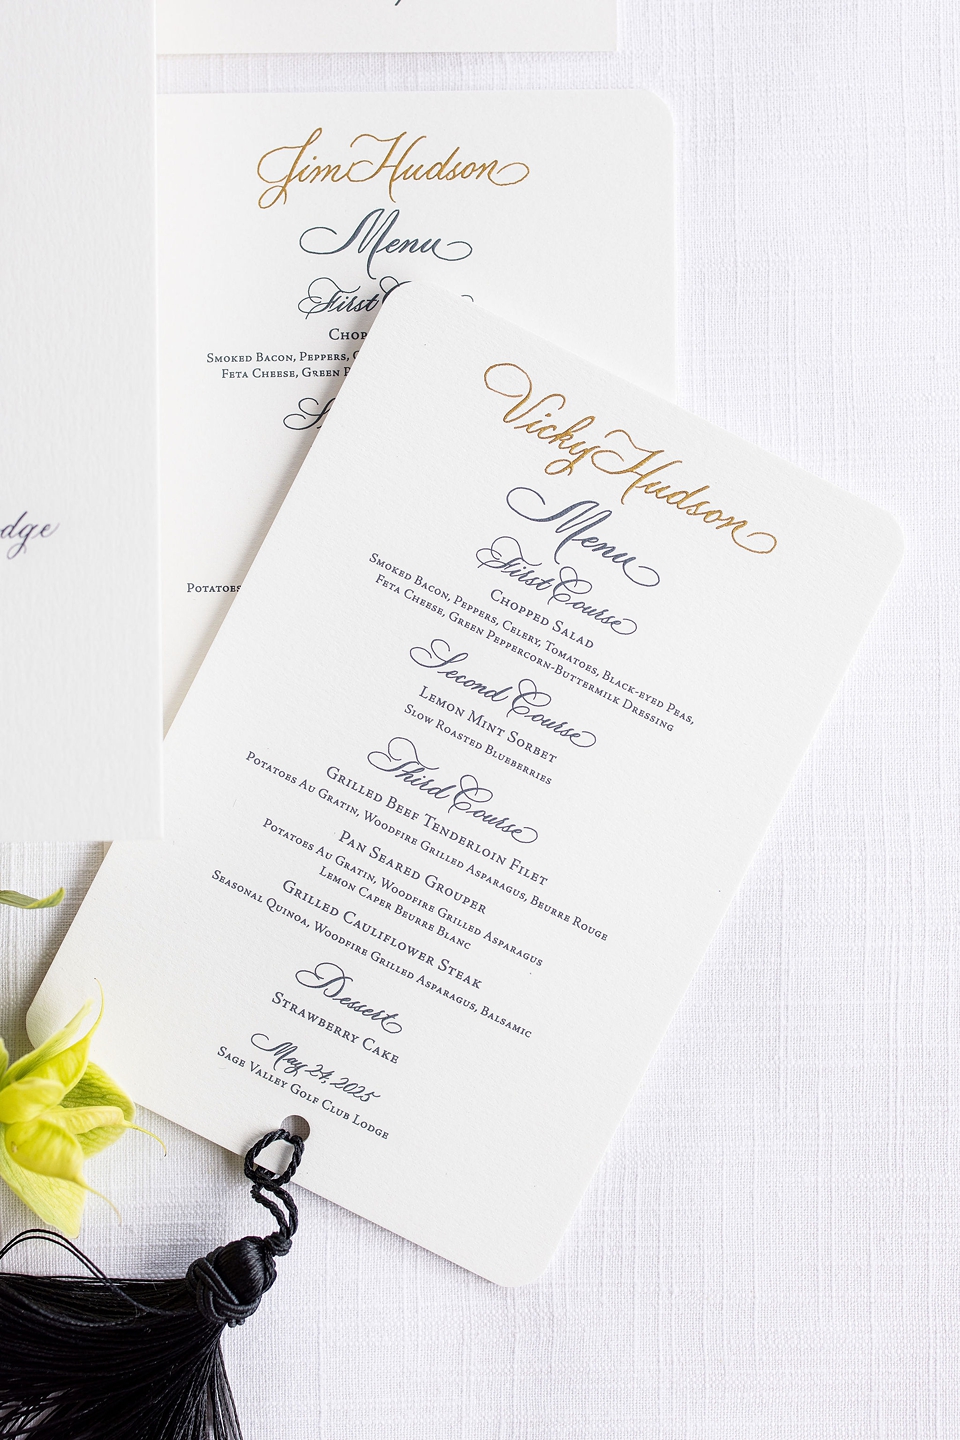 Jim Hudson
Menu
First
Smoked Bacon, Peppers,
Feta Cheese, Green
Potatoes
Vicky Hudson
Menu
First Course
Chopped Salad
Smoked Bacon, Peppers, Celery, Tomatoes, Black-eyed Peas,
Feta Cheese, Green Peppercorn-Buttermilk Dressing
Second Course
Lemon Mint Sorbet
Slow Roasted Blueberries
Third Course
Grilled Beef Tenderloin Filet
Potatoes Au Gratin, Woodfire Grilled Asparagus, Beurre Rouge
Pan Seared Grouper
Potatoes Au Gratin, Woodfire Grilled Asparagus
Lemon Caper Beurre Blanc
Grilled Cauliflower Steak
Seasonal Quinoa, Woodfire Grilled Asparagus, Balsamic
Dessert
Strawberry Cake
May 24, 2025
Sage Valley Golf Club Lodge